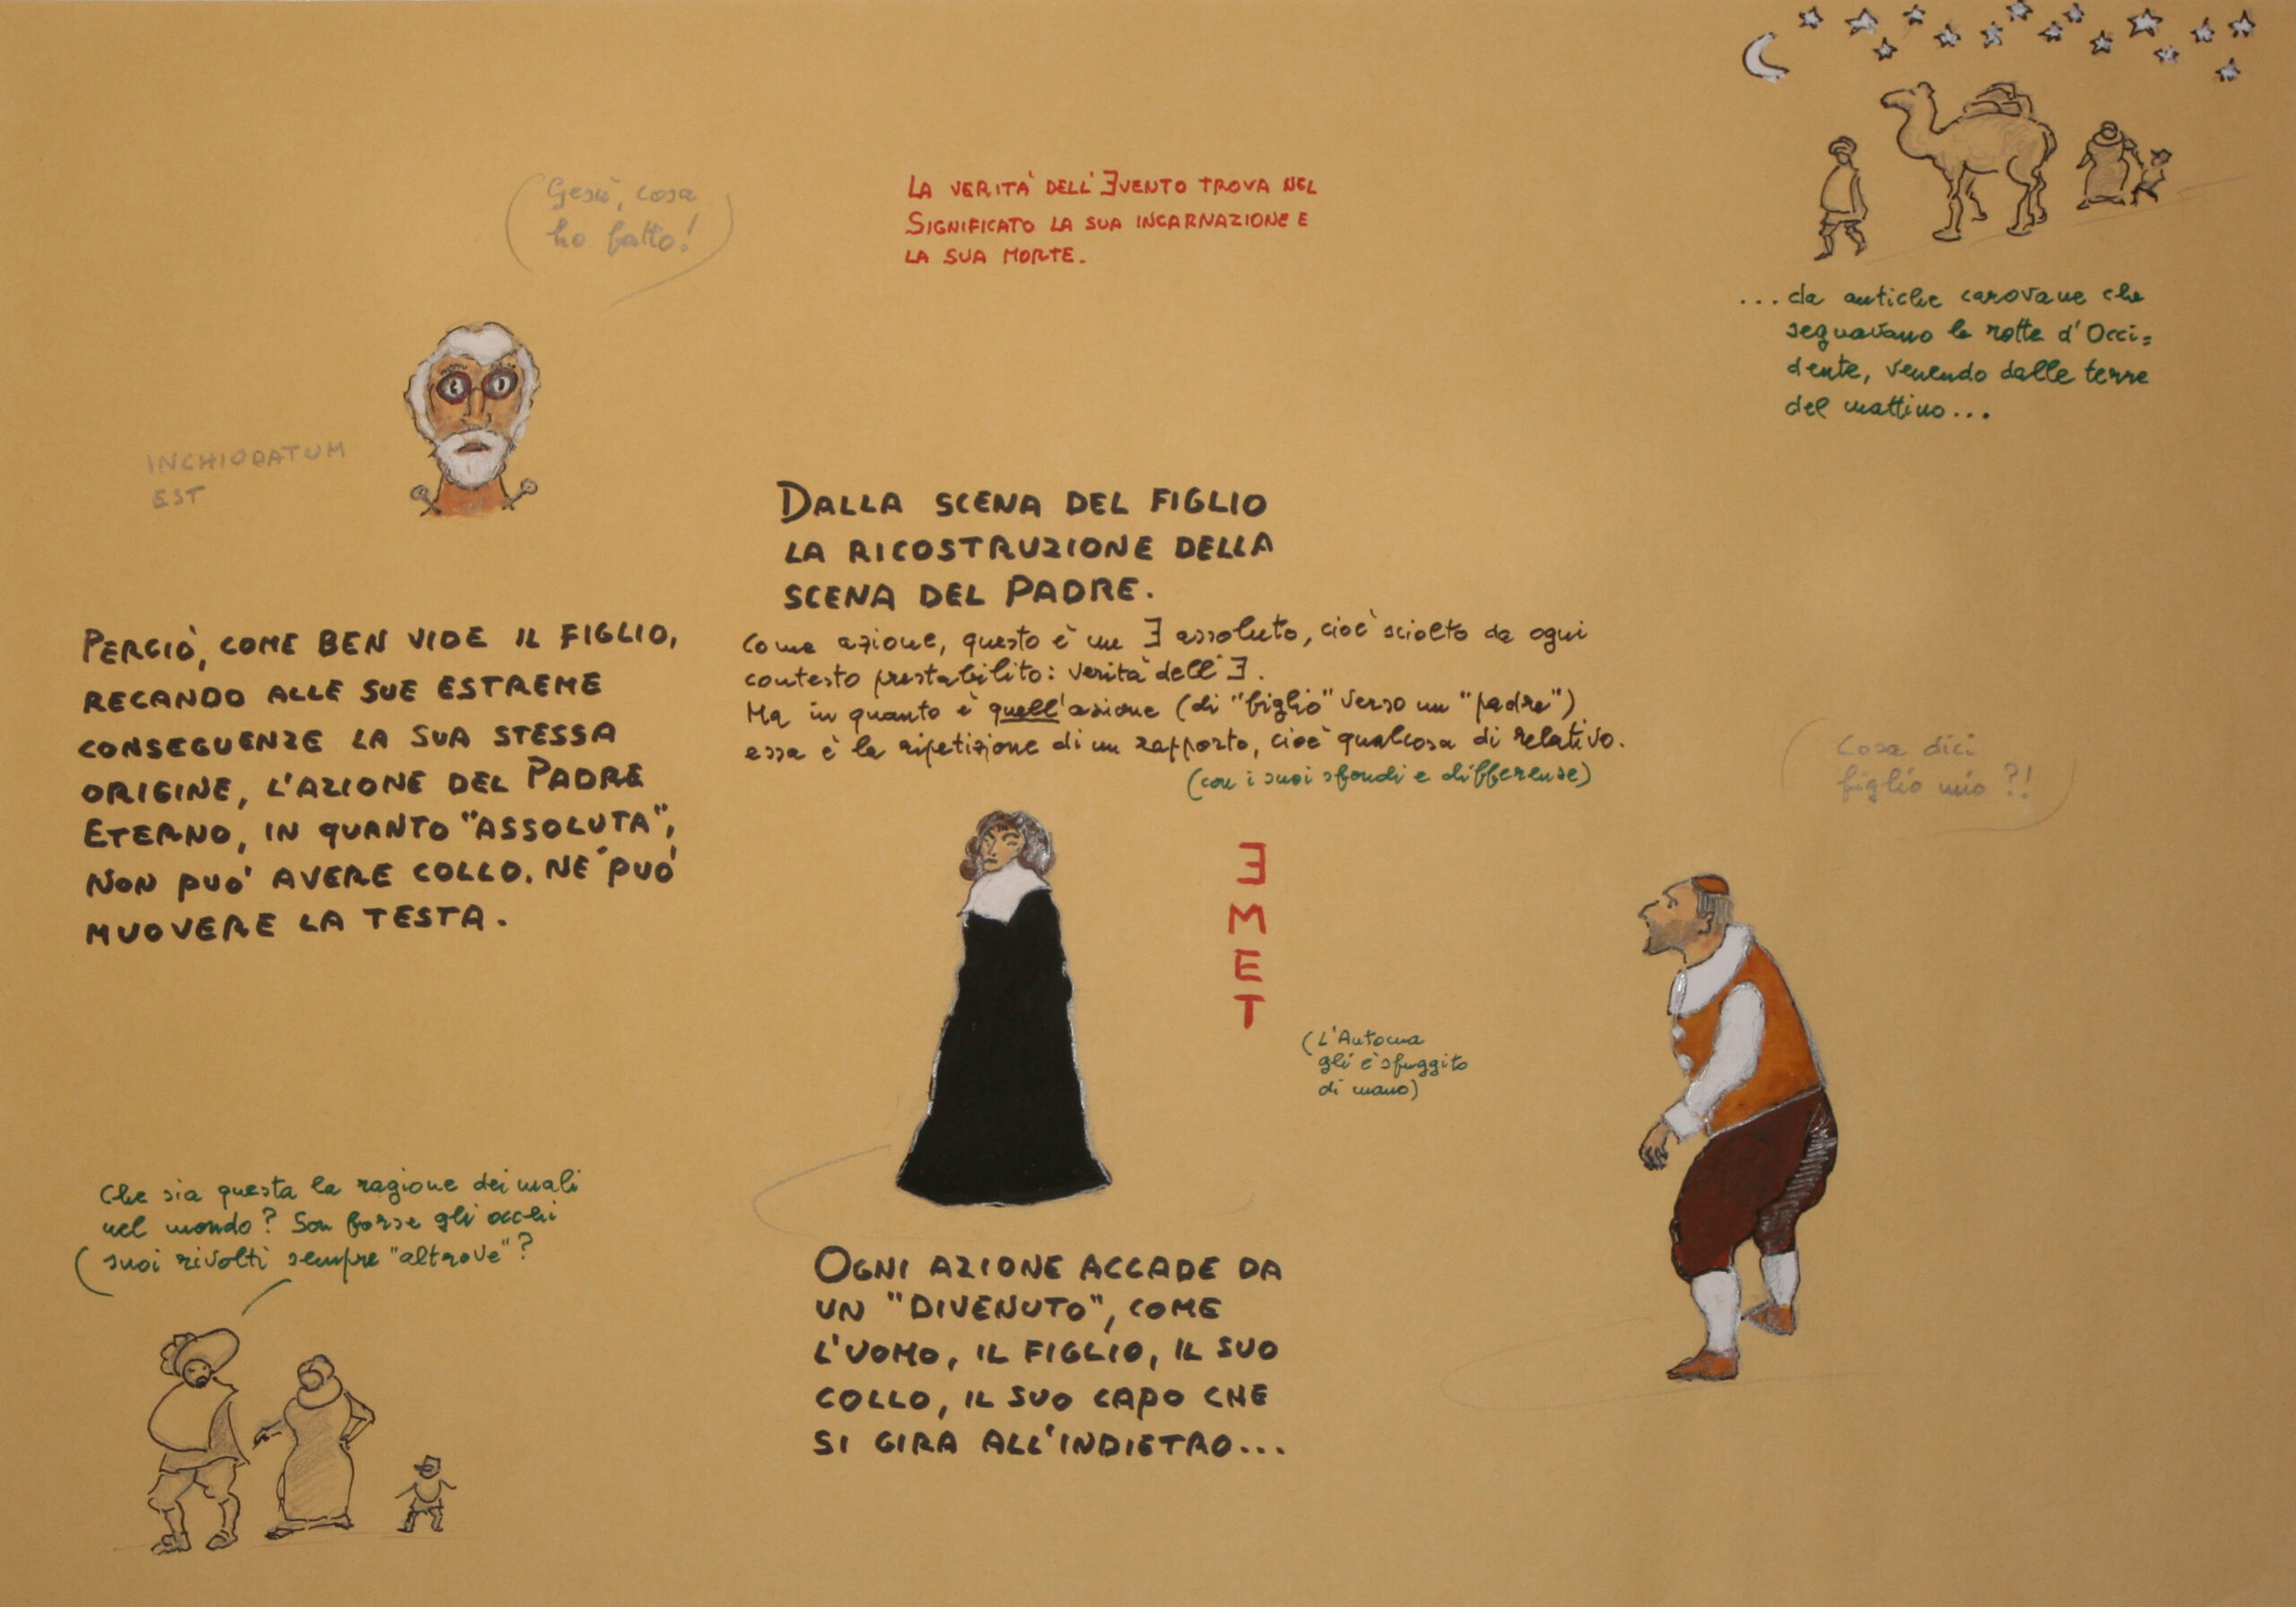 Gesù, cosa
ho fatto!
LA VERITÀ DELL'ƎVENTO TROVA NEL
SIGNIFICATO LA SUA INCARNAZIONE E
LA SUA MORTE.
...da antiche carovane che
seguavano le rotte d'Occi=
dente, venendo dalle terre
del mattino...
INCHIODATUM
EST
DALLA SCENA DEL FIGLIO
LA RICOSTRUZIONE DELLA
SCENA DEL PADRE.
Come azione, questo è un Ǝ assoluto, cioè sciolto da ogni
contesto prestabilito: verità dell'Ǝ.
Ma in quanto è quell'azione (di "figlio" verso un "padre")
essa è la ripetizione di un rapporto, cioè qualcosa di relativo.
(con i suoi sfondi e differenze)
PERCIÒ, COME BEN VIDE IL FIGLIO,
RECANDO ALLE SUE ESTREME
CONSEGUENZE LA SUA STESSA
ORIGINE, L'AZIONE DEL PADRE
ETERNO, IN QUANTO "ASSOLUTA",
NON PUO' AVERE COLLO. NE' PUO'
MUOVERE LA TESTA.
Cosa dici
figlio mio?!
Ǝ
M
E
T
(L'Automa
gli è sfuggito
di mano)
Che sia questa la ragione dei mali
nel mondo? Son forse gli occhi
suoi rivolti sempre "altrove"?
OGNI AZIONE ACCADE DA
UN "DIVENUTO", COME
L'UOMO, IL FIGLIO, IL SUO
COLLO, IL SUO CAPO CHE
SI GIRA ALL'INDIETRO...